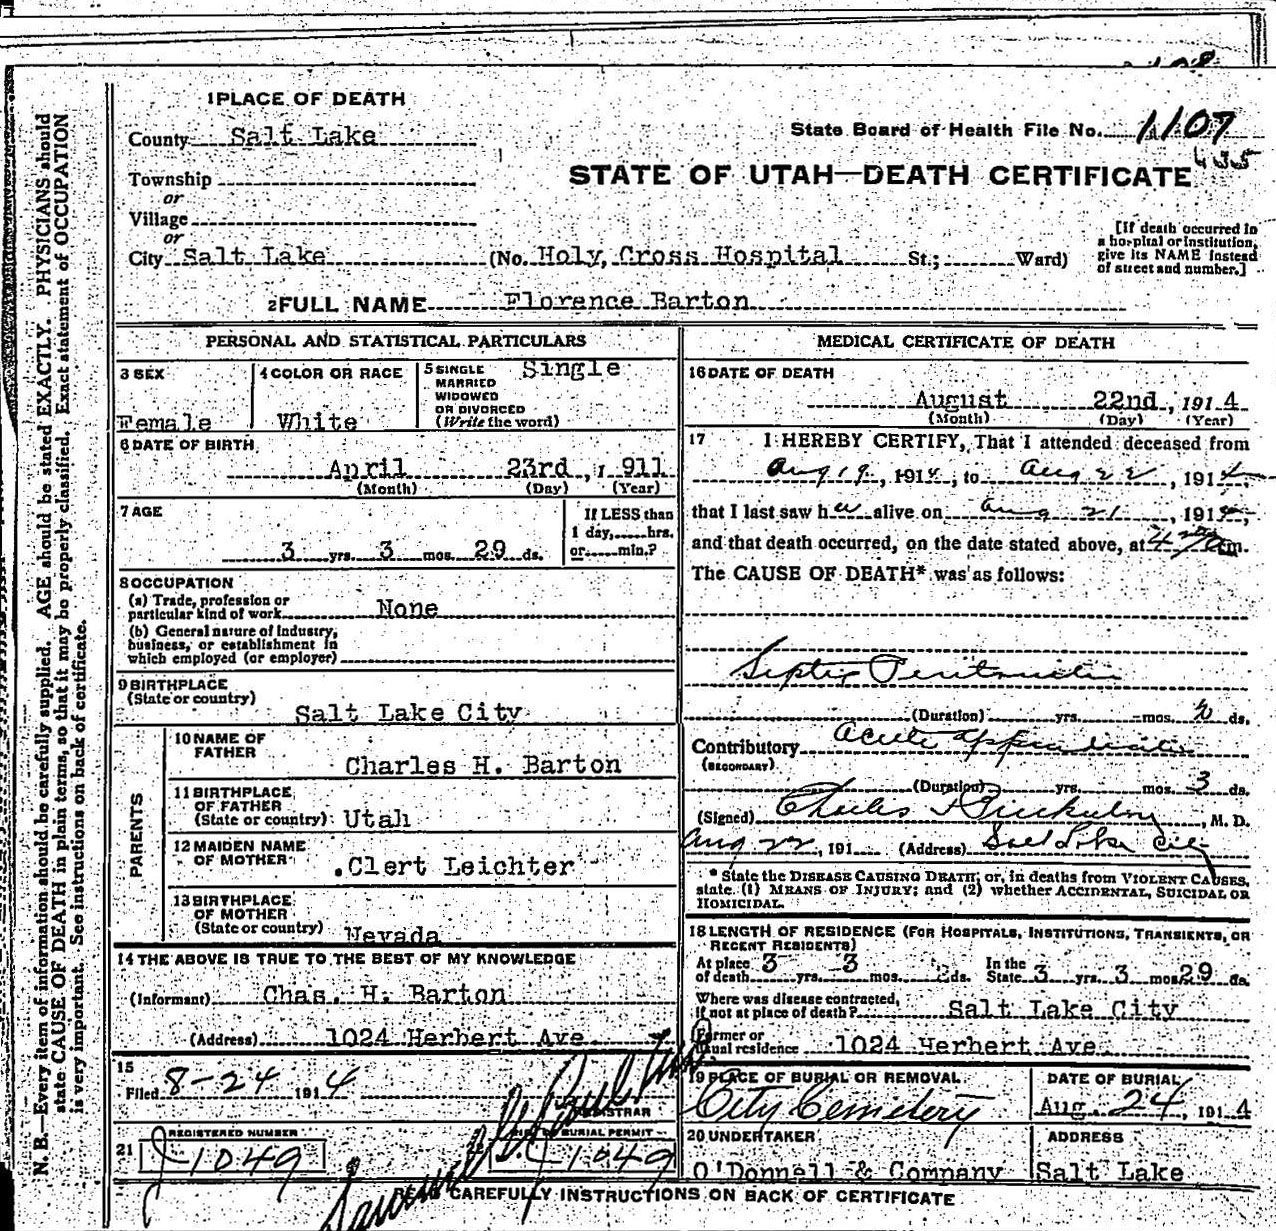 1 PLACE OF DEATH
County Salt Lake
State Board of Health File No. 1107
435
Township
or
Village
or
STATE OF UTAH—DEATH CERTIFICATE
City Salt Lake (No. Holy, Cross Hospital St.; Ward)
[If death occurred in a hospital or institution, give its NAME instead of street and number.]
2 FULL NAME Florence Barton
PERSONAL AND STATISTICAL PARTICULARS
3 SEX
Female
4 COLOR OR RACE
White
5 SINGLE MARRIED WIDOWED OR DIVORCED (Write the word)
Single
6 DATE OF BIRTH
April 23rd, 1911
(Month) (Day) (Year)
7 AGE
3 yrs. 3 mos. 29 ds.
If LESS than 1 day, hrs. or min.?
8 OCCUPATION
(a) Trade, profession or particular kind of work None
(b) General nature of industry, business, or establishment in which employed (or employer)
9 BIRTHPLACE
(State or country)
Salt Lake City
PARENTS
10 NAME OF FATHER
Charles H. Barton
11 BIRTHPLACE OF FATHER (State or country) Utah
12 MAIDEN NAME OF MOTHER
Clert Leichter
13 BIRTHPLACE OF MOTHER (State or country) Nevada
14 THE ABOVE IS TRUE TO THE BEST OF MY KNOWLEDGE
(Informant) Chas. H. Barton
(Address) 1024 Herbert Ave.
15
Filed 8-24 1914
REGISTRAR
21 REGISTERED NUMBER
J 1049
BURIAL PERMIT
J 1049
MEDICAL CERTIFICATE OF DEATH
16 DATE OF DEATH
August 22nd, 1914
(Month) (Day) (Year)
17 I HEREBY CERTIFY, That I attended deceased from
Aug 19, 1914, to Aug 22, 1914,
that I last saw her alive on Aug 21, 1914,
and that death occurred, on the date stated above, at 4 am.
The CAUSE OF DEATH* was as follows:
Septic Peritonitis
(Duration) yrs. mos. ds.
Contributory Acute appendicitis
(SECONDARY)
(Duration) yrs. mos. 3 ds.
(Signed) Charles , M. D.
Aug 22, 191 (Address) Salt Lake City
* State the DISEASE CAUSING DEATH; or, in deaths from VIOLENT CAUSES, state (1) MEANS OF INJURY; and (2) whether ACCIDENTAL, SUICIDAL OR HOMICIDAL.
18 LENGTH OF RESIDENCE (FOR HOSPITALS, INSTITUTIONS, TRANSIENTS, OR RECENT RESIDENTS)
At place of death 3 yrs. 3 mos. 2 ds. In the State 3 yrs. 3 mos 29 ds.
Where was disease contracted, if not at place of death? Salt Lake City
Former or usual residence 1024 Herbert Ave.
19 PLACE OF BURIAL OR REMOVAL
City Cemetery
DATE OF BURIAL
Aug. 24, 1914
20 UNDERTAKER
O'Donnell & Company
ADDRESS
Salt Lake
CAREFULLY INSTRUCTIONS ON BACK OF CERTIFICATE
N. B.—Every item of information should be carefully supplied. AGE should be stated EXACTLY. PHYSICIANS should
state CAUSE OF DEATH in plain terms, so that it may be properly classified. Exact statement of OCCUPATION
is very important. See instructions on back of certificate.